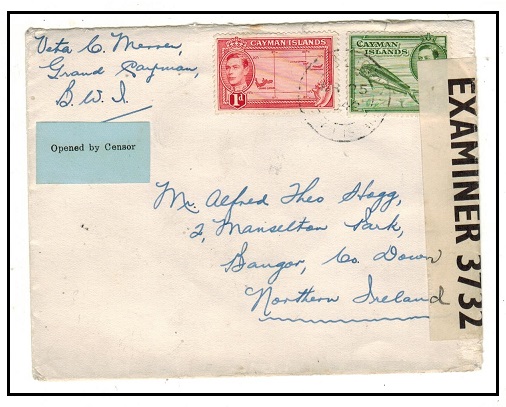 Veta C. Merren,
Grand Cayman,
B.W.I.
CAYMAN ISLANDS
1d
CAYMAN
ISLANDS
Opened by Censor
EXAMINER 3732
Mr. Alfred Theo Hogg,
2, Manselton Park,
Bangor, Co. Down
Northern Ireland